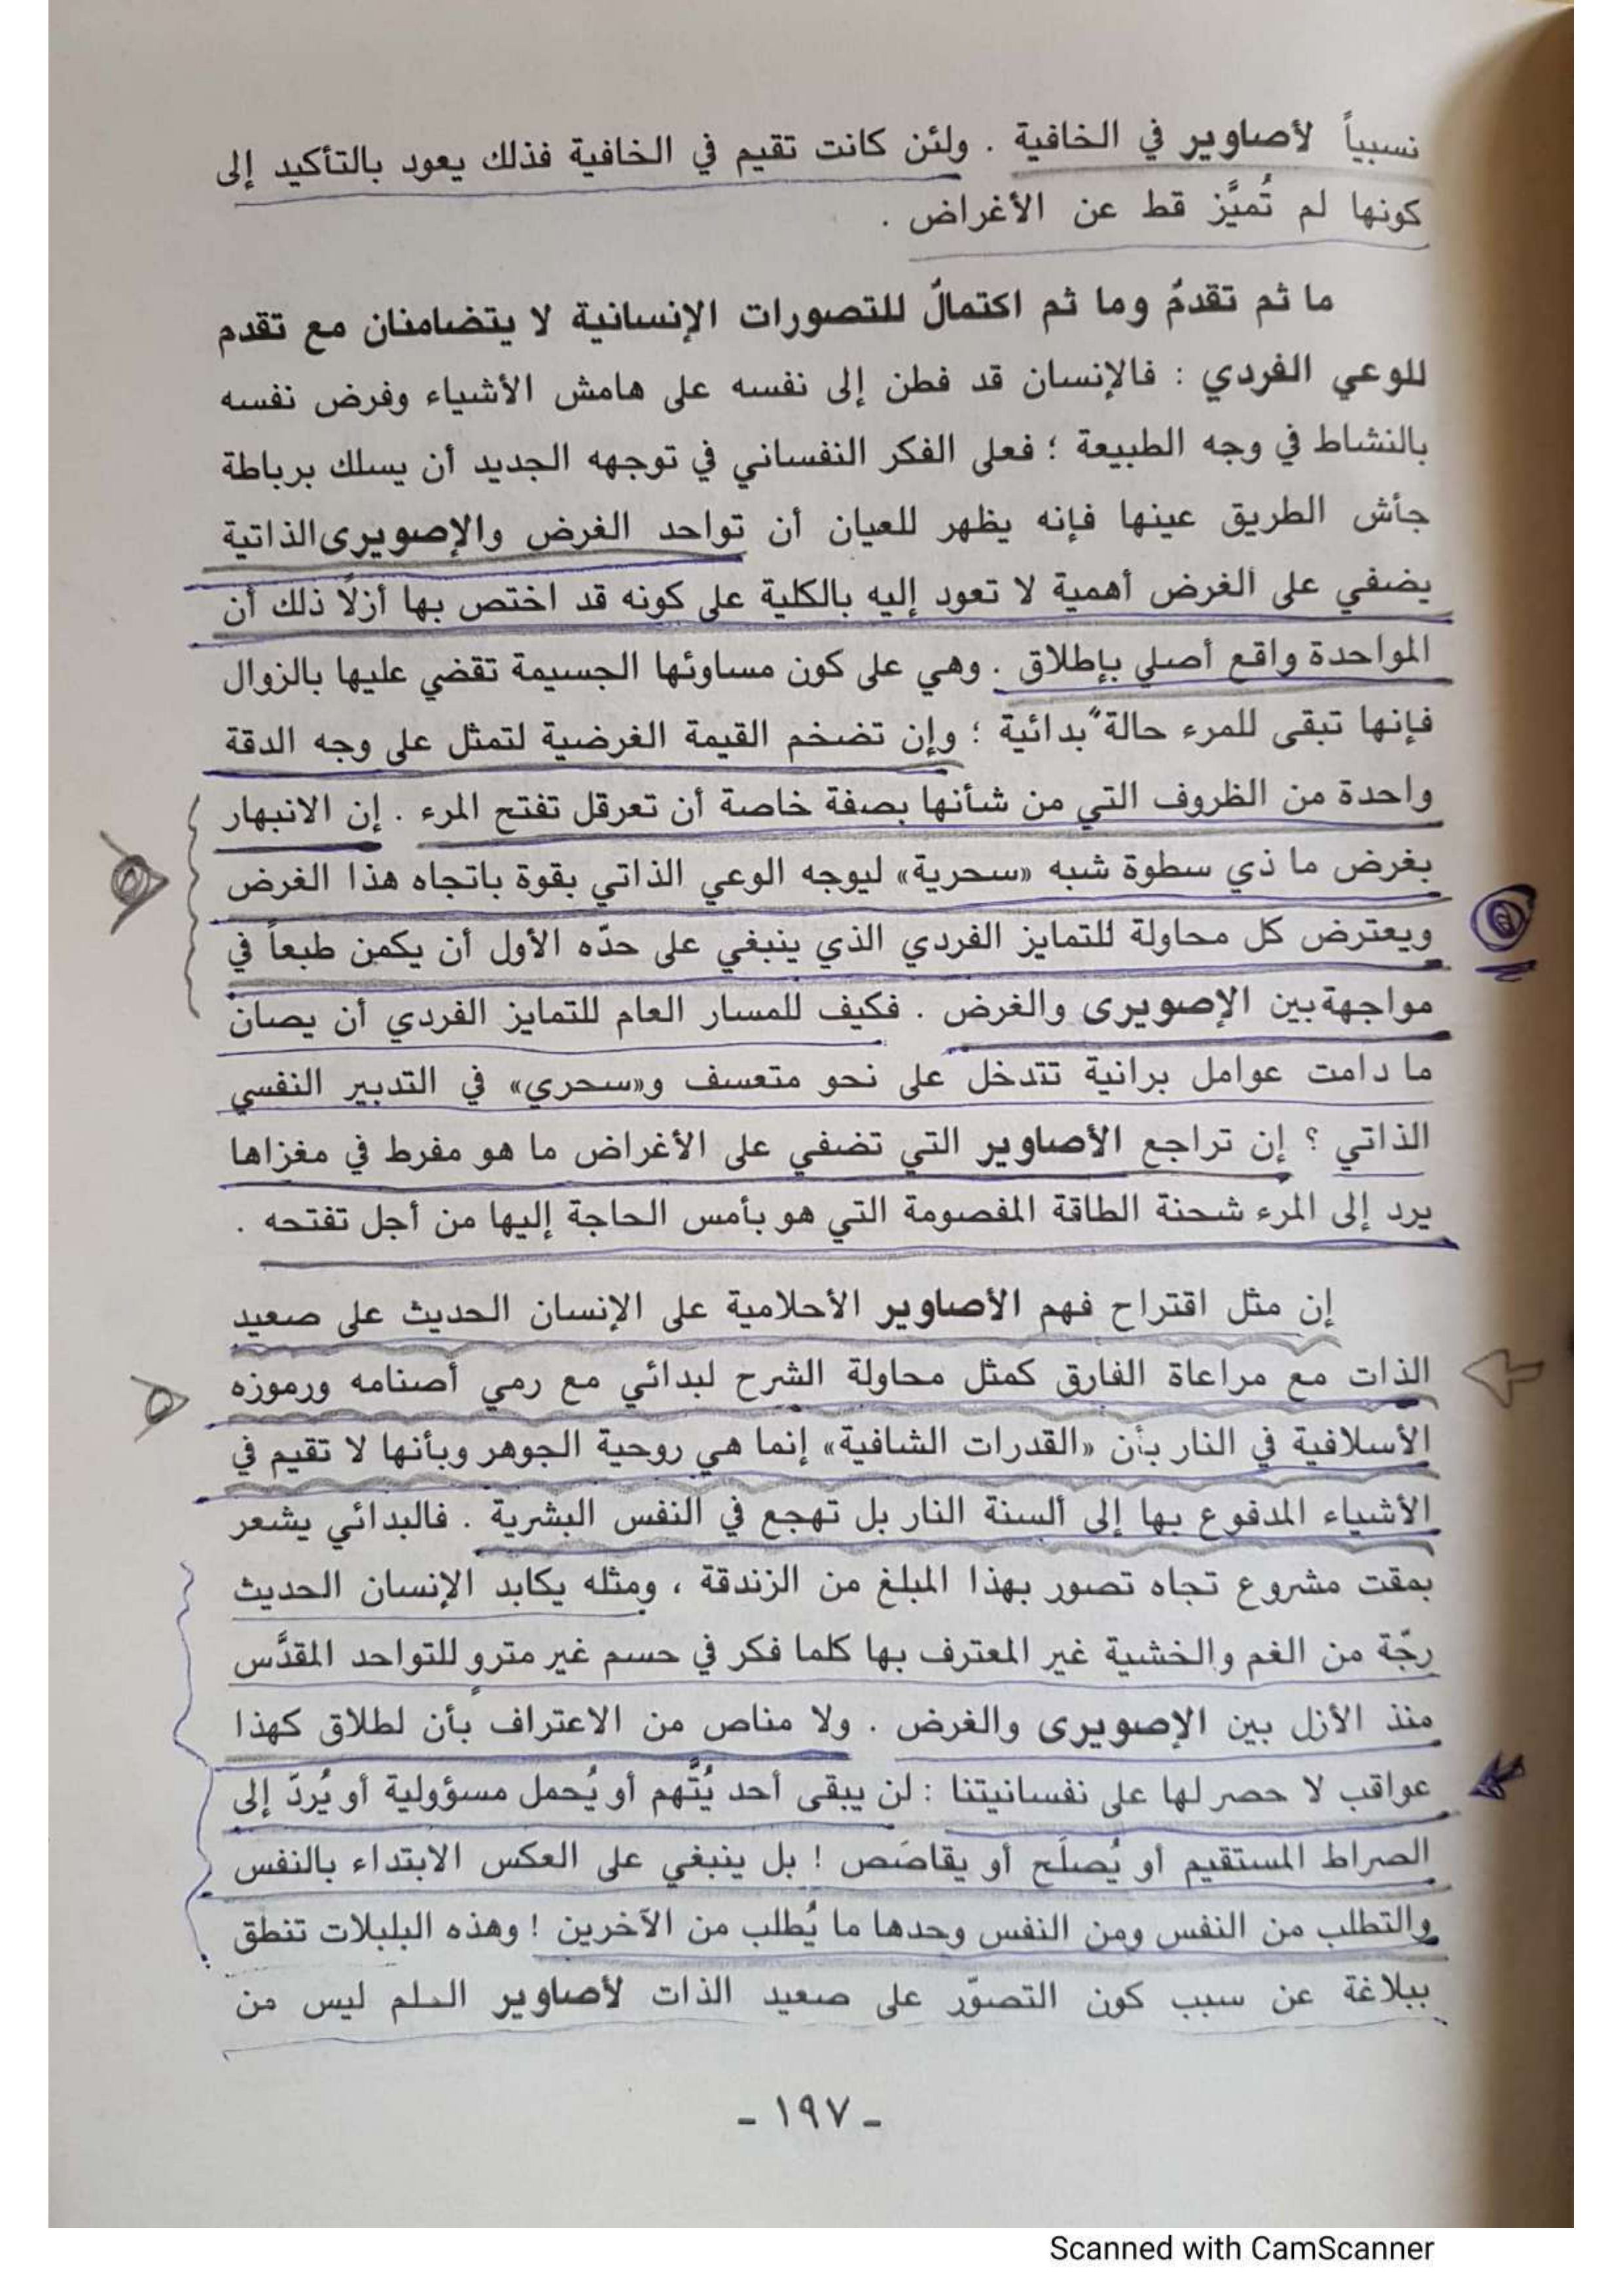 نسبياً لأصاوير في الخافية . ولئن كانت تقيم في الخافية فذلك يعود بالتأكيد إلى
كونها لم تُميَّز قط عن الأغراض .
ما ثم تقدمٌ وما ثم اكتمالٌ للتصورات الإنسانية لا يتضامنان مع تقدم
للوعي الفردي : فالإنسان قد فطن إلى نفسه على هامش الأشياء وفرض نفسه
بالنشاط في وجه الطبيعة ؛ فعلى الفكر النفساني في توجهه الجديد أن يسلك برباطة
جأش الطريق عينها فإنه يظهر للعيان أن تواحد الغرض والإصويرى الذاتية
يضفي على الغرض أهمية لا تعود إليه بالكلية على كونه قد اختص بها أزلًا ذلك أن
المواحدة واقع أصلي بإطلاق . وهي على كون مساوئها الجسيمة تقضي عليها بالزوال
فإنها تبقى للمرء حالة بدائية ؛ وإن تضخم القيمة الغرضية لتمثل على وجه الدقة
واحدة من الظروف التي من شأنها بصفة خاصة أن تعرقل تفتح المرء . إن الانبهار
بغرض ما ذي سطوة شبه «سحرية» ليوجه الوعي الذاتي بقوة باتجاه هذا الغرض
ويعترض كل محاولة للتمايز الفردي الذي ينبغي على حدّه الأول أن يكمن طبعاً في
مواجهة بين الإصويرى والغرض . فكيف للمسار العام للتمايز الفردي أن يصان
ما دامت عوامل برانية تتدخل على نحو متعسف و«سحري» في التدبير النفسي
الذاتي ؟ إن تراجع الأصاوير التي تضفي على الأغراض ما هو مفرط في مغزاها
يرد إلى المرء شحنة الطاقة المفصومة التي هو بأمس الحاجة إليها من أجل تفتحه .
إن مثل اقتراح فهم الأصاوير الأحلامية على الإنسان الحديث على صعيد
الذات مع مراعاة الفارق كمثل محاولة الشرح لبدائي مع رمي أصنامه ورموزه
الأسلافية في النار بأن «القدرات الشافية» إنما هي روحية الجوهر وبأنها لا تقيم في
الأشياء المدفوع بها إلى ألسنة النار بل تهجع في النفس البشرية . فالبدائي يشعر
بمقت مشروع تجاه تصور بهذا المبلغ من الزندقة ، ومثله يكابد الإنسان الحديث
رجّة من الغم والخشية غير المعترف بها كلما فكر في حسم غير مترو للتواحد المقدَّس
منذ الأزل بين الإصويرى والغرض . ولا مناص من الاعتراف بأن لطلاق كهذا
عواقب لا حصر لها على نفسانيتنا : لن يبقى أحد يُتَّهم أو يُحمل مسؤولية أو يُردّ إلى
الصراط المستقيم أو يُصلَح أو يقاصَص ! بل ينبغي على العكس الابتداء بالنفس
والتطلب من النفس ومن النفس وحدها ما يُطلب من الآخرين ! وهذه البلبلات تنطق
ببلاغة عن سبب كون التصوّر على صعيد الذات لأصاوير الحلم ليس من
- ١٩٧ -
Scanned with CamScanner